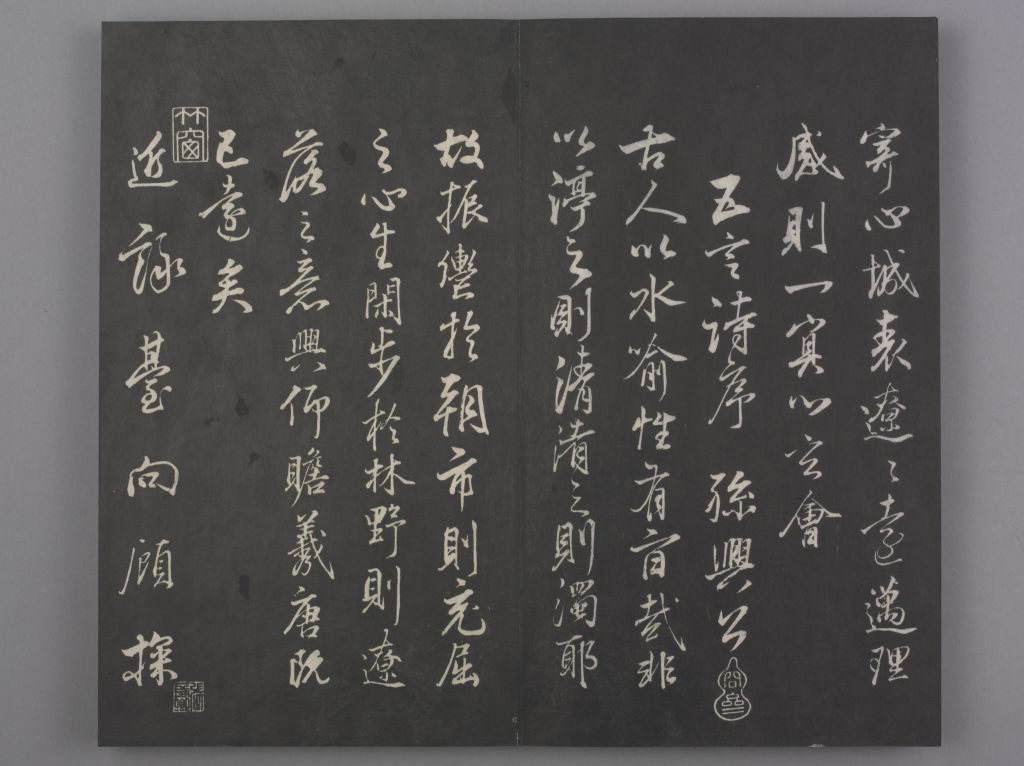 寄心城表遼〻遠邁理
感則一冥心玄會
五言詩序 孫興公
古人以水喻性有旨哉非
以渟之則清漬之則濁耶
故振轡於朝市則充屈
之心生閑步於林野則遼
落之意興仰瞻羲唐既
已遠矣
竹窗
近詠臺向顧探